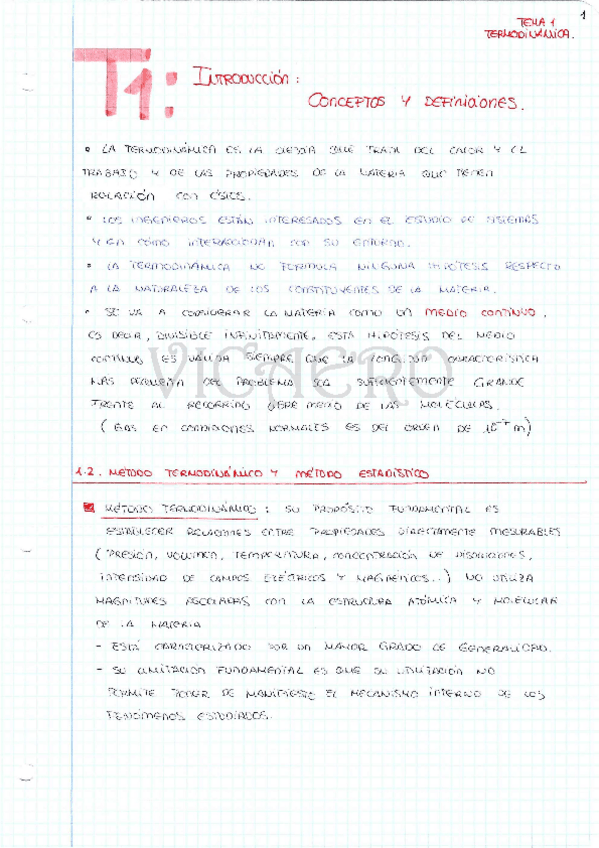 1
TEMA 1
TERMODINÁMICA.
T1: INTRODUCCIÓN:
CONCEPTOS Y DEFINICIONES.
• LA TERMODINÁMICA ES LA CIENCIA QUE TRATA DEL CALOR Y EL
TRABAJO Y DE LAS PROPIEDADES DE LA MATERIA QUE TIENEN
RELACIÓN CON ÉSTOS.
• LOS INGENIEROS ESTÁN INTERESADOS EN EL ESTUDIO DE SISTEMAS
Y EN CÓMO INTERACCIONAN CON SU ENTORNO.
• LA TERMODINÁMICA NO FORMULA NINGUNA HIPÓTESIS RESPECTO
A LA NATURALEZA DE LOS CONSTITUYENTES DE LA MATERIA.
• SE VA A CONSIDERAR LA MATERIA COMO UN MEDIO CONTINUO,
ES DECIR, DIVISIBLE INFINITAMENTE, ESTA HIPÓTESIS DEL MEDIO
CONTINUO ES VÁLIDA SIEMPRE QUE LA LONGITUD CARACTERÍSTICA
MÁS PEQUEÑA DEL PROBLEMA SEA SUFICIENTEMENTE GRANDE
FRENTE AL RECORRIDO LIBRE MEDIO DE LAS MOLÉCULAS.
(GAS EN CONDICIONES NORMALES ES DEL ORDEN DE 10⁻⁷ m)
VICAERO
1.2. MÉTODO TERMODINÁMICO Y MÉTODO ESTADÍSTICO
MÉTODO TERMODINÁMICO: SU PROPÓSITO FUNDAMENTAL ES
ESTABLECER RELACIONES ENTRE PROPIEDADES DIRECTAMENTE MESURABLES
(PRESIÓN, VOLUMEN, TEMPERATURA, CONCENTRACIÓN DE DISOLUCIONES,
INTENSIDAD DE CAMPOS ELÉCTRICOS Y MAGNÉTICOS...) NO UTILIZA
MAGNITUDES ASOCIADAS CON LA ESTRUCTURA ATÓMICA Y MOLECULAR
DE LA MATERIA
- ESTÁ CARACTERIZADO POR UN MAYOR GRADO DE GENERALIDAD.
- SU LIMITACIÓN FUNDAMENTAL ES QUE SU UTILITACIÓN NO
PERMITE PONER DE MANIFIESTO EL MECANISMO INTERNO DE LOS
FENÓMENOS ESTUDIADOS.